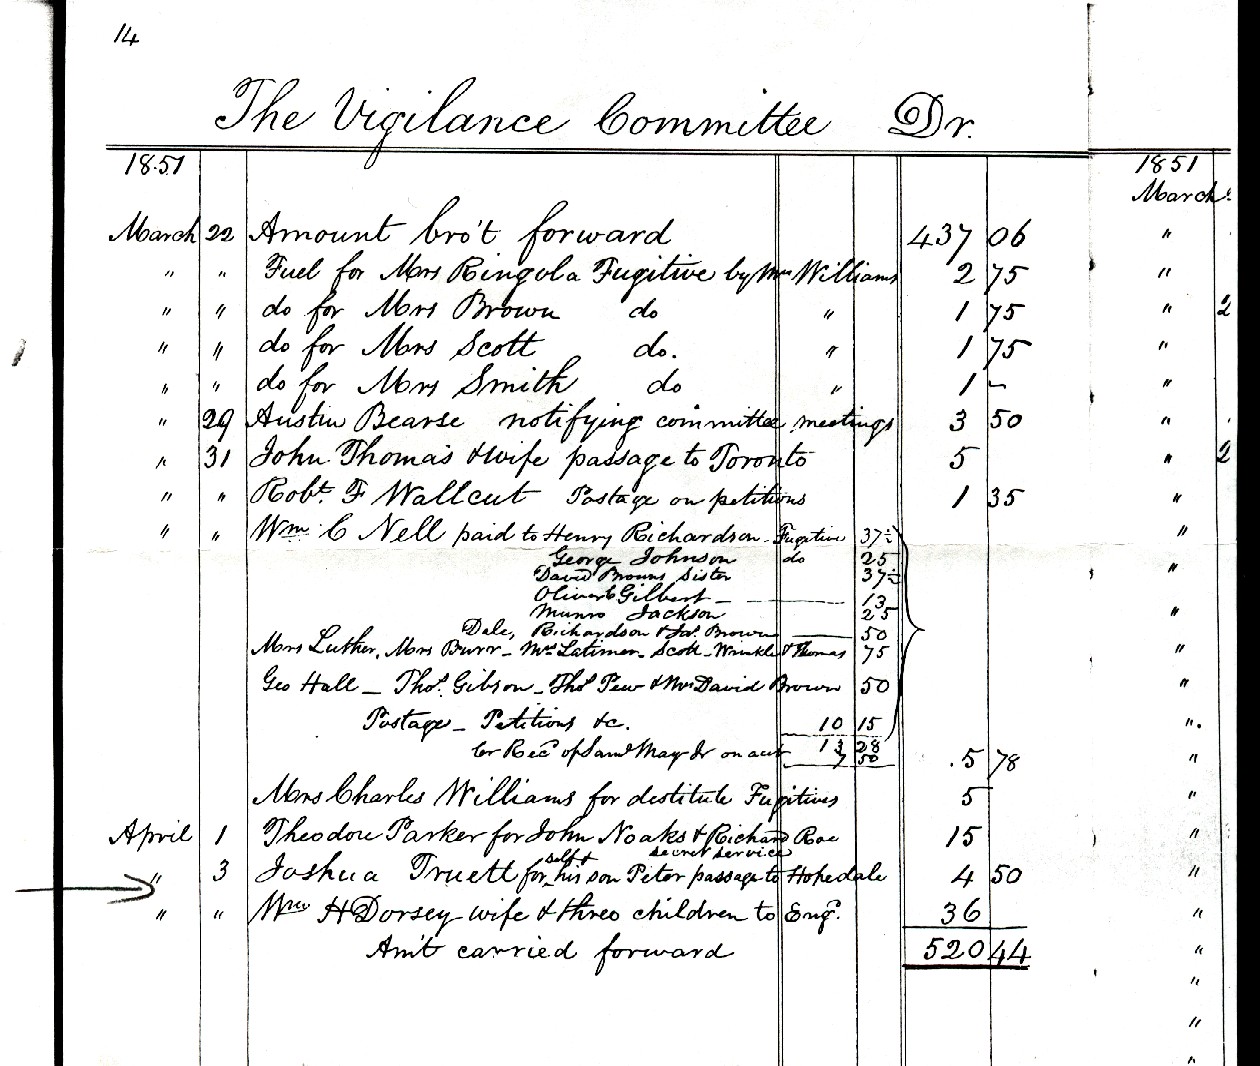 14
The Vigilance Committee Dr.
1851
March 22 Amount bro't forward 437 06
" " Fuel for Mrs Ringola Fugitive by Mrs Williams 2 75
" " do for Mrs Brown do " 1 75
" " do for Mrs Scott do. " 1 75
" " do for Mrs Smith do " 1 ~
" 29 Austin Bearse notifying committee meetings 3 50
" 31 John Thomas & wife passage to Toronto 5
" " Robt. F Wallcut Postage on petitions 1 35
" " Wm C Nell paid to Henry Richardson - Fugitive 37½
George Johnson do 25
David Browns Sister 37½
Oliver C Gilbert — 13
Munro Jackson 25
Dale, Richardson & Jas. Brown — 50
Mrs Luther, Mrs Burr - Mrs Latimer - Scott - Winkle & Thomas 75
Geo Hall — Thos. Gibson - Thos Pew & Mrs David Brown 50
Postage — Petitions &c. 10 15
13 28
Cr Recd of Saml May Jr on acct 7 50 5 78
Mrs Charles Williams for destitute Fugitives 5
April 1 Theodore Parker for John Noaks & Richard Roe 15
secret service
" 3 Joshua Truett for self & his son Peter passage to Hopedale 4 50
" " Wm H Dorsey wife & three children to Engd. 36
Am't carried forward 520 44
1851
March
" 
" 
" 2
" 
" 
" 
" 2
" 
" 
" 
" 
" 
" 
" 
" 
" 
" 
" 
" 
" 
" 
" 
"